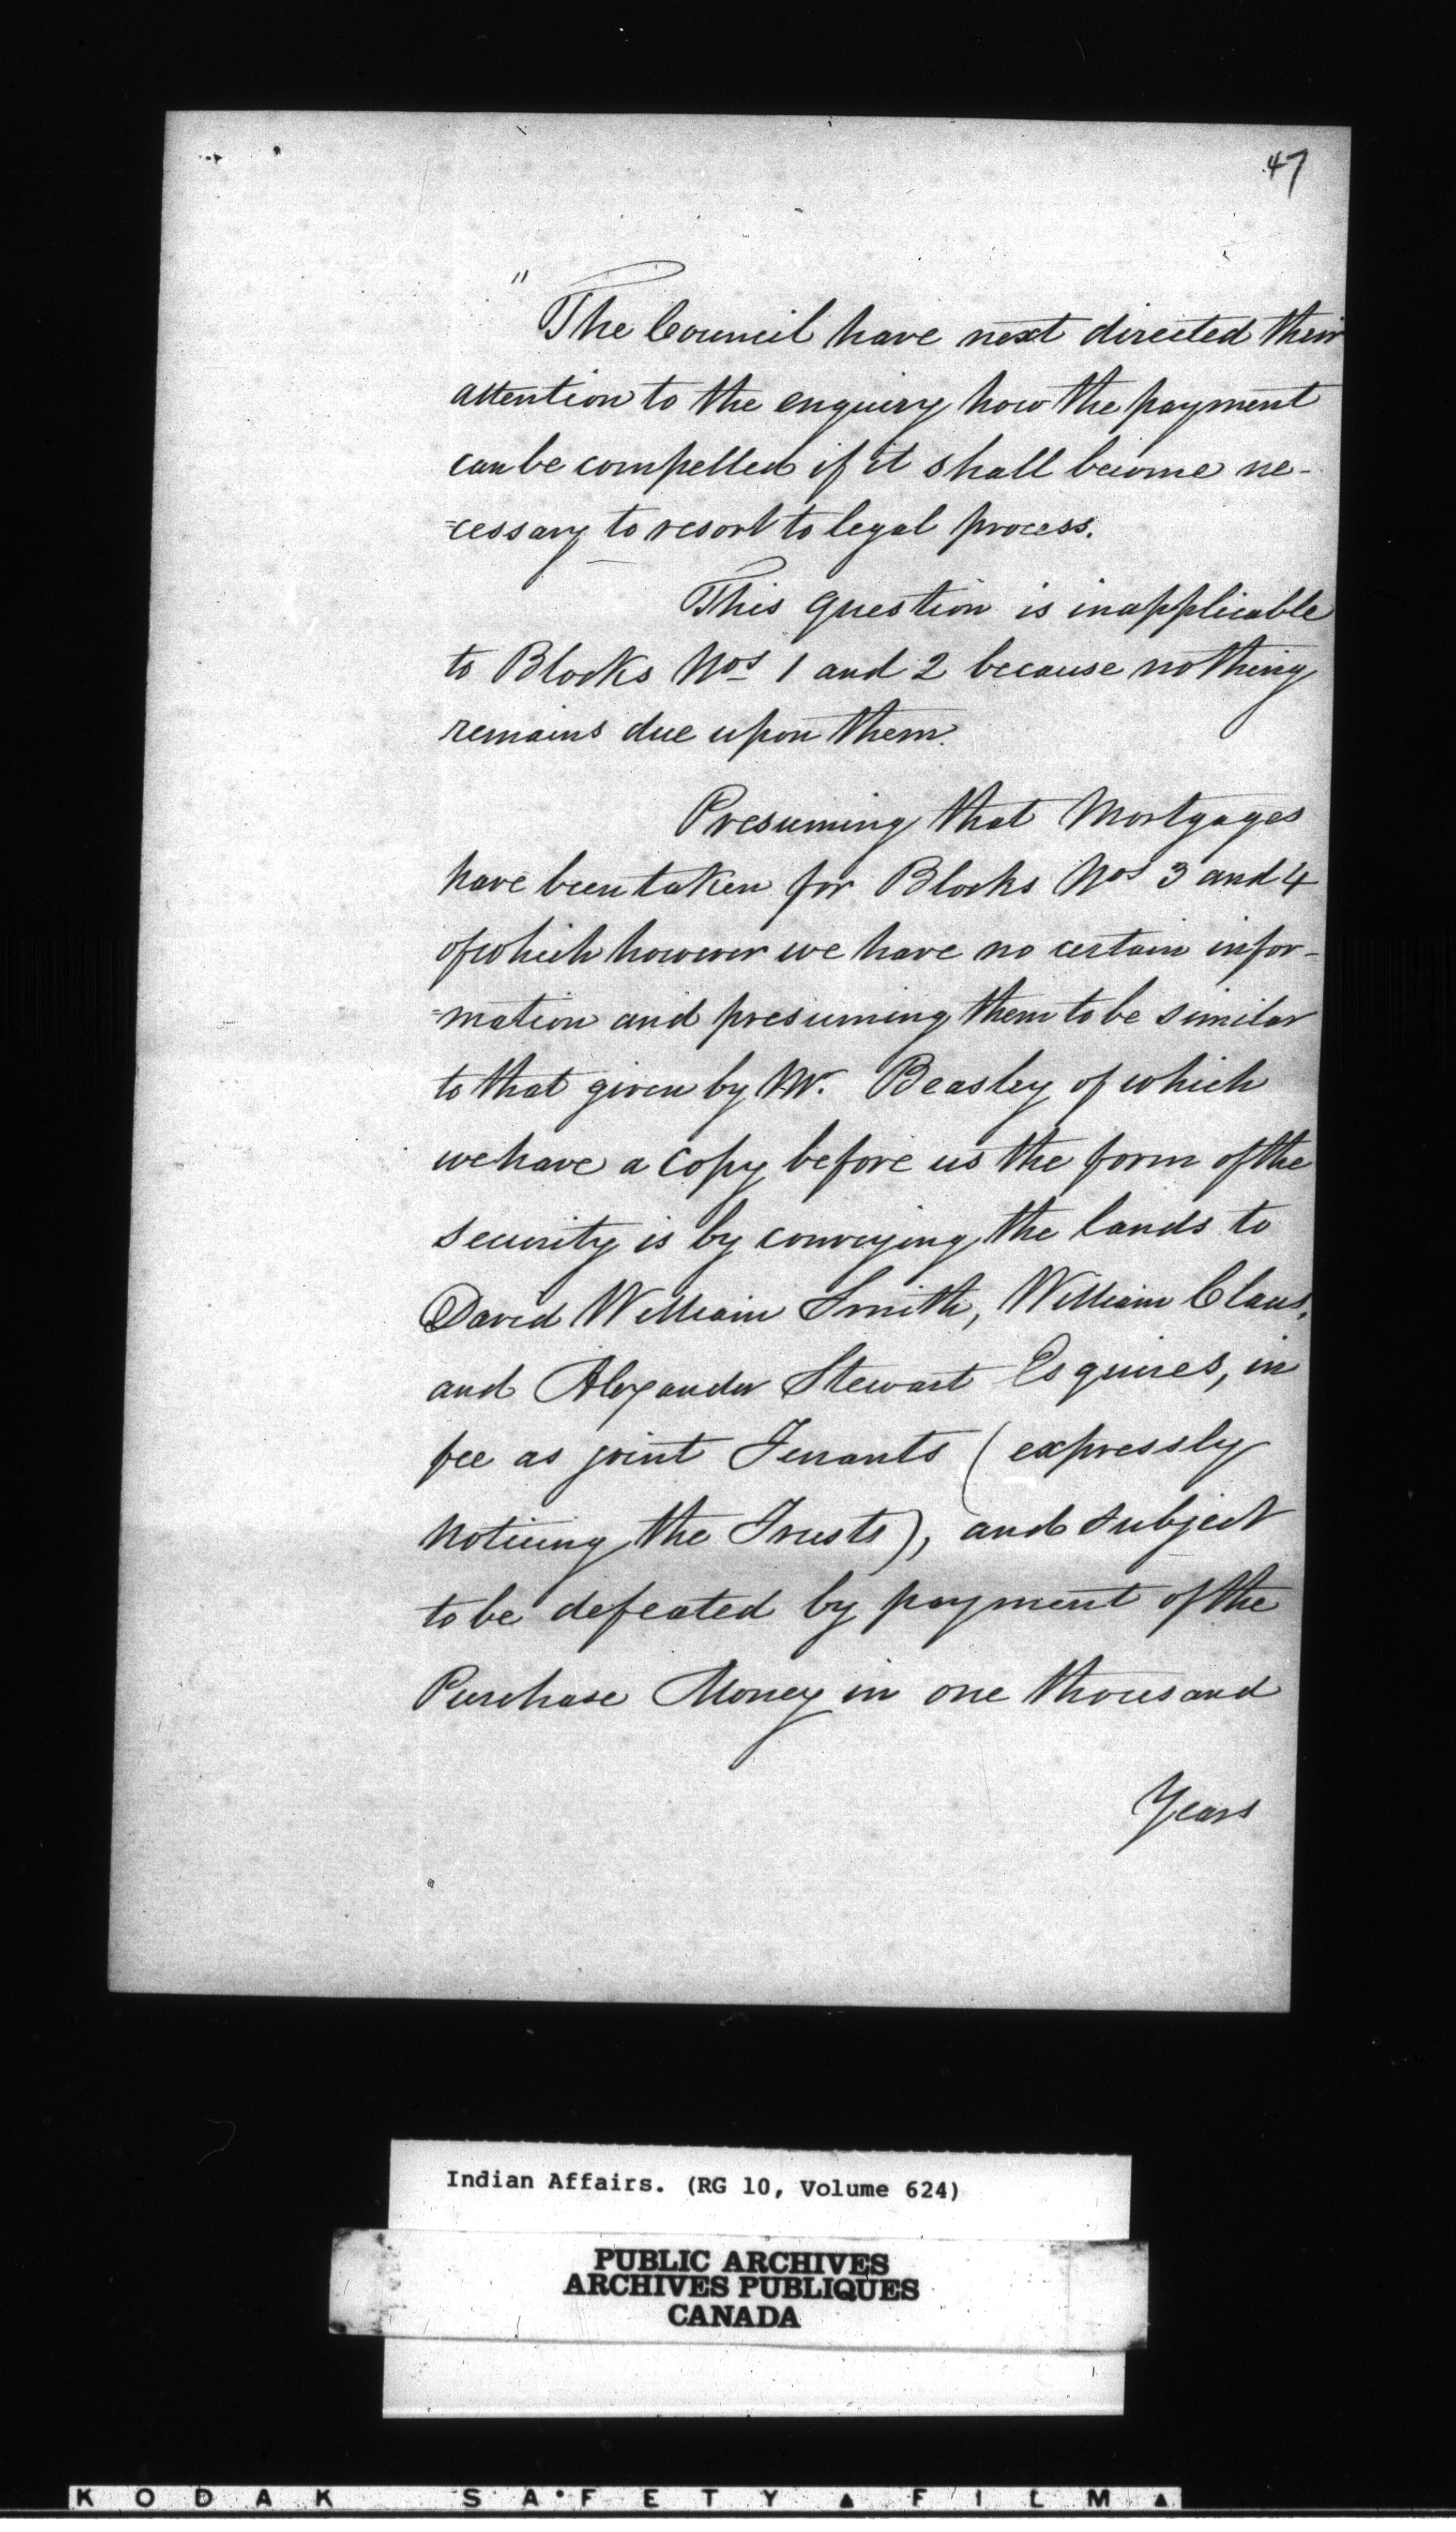 47
" The Council have next directed their
attention to the enquiry how the payment
can be compelled if it shall become ne-
=cessary to resort to legal process.
This question is inapplicable
to Blocks Nos 1 and 2 because nothing
remains due upon them.
Presuming that Mortgages
have been taken for Blocks Nos 3 and 4
of which however we have no certain infor-
=mation and presuming them to be similar
to that given by Mr. Beasley of which
we have a Copy before us the form of the
security is by conveying the lands to
David William Smith, William Claus,
and Alexander Stewart Esquires, in
fee as joint Tenants (expressly
noticing the Trusts), and subject
to be defeated by payment of the
Purchase Money in one thousand
Years
Indian Affairs. (RG 10, Volume 624)
PUBLIC ARCHIVES
ARCHIVES PUBLIQUES
CANADA
KODAK SAFETY ▲ FILM ▲